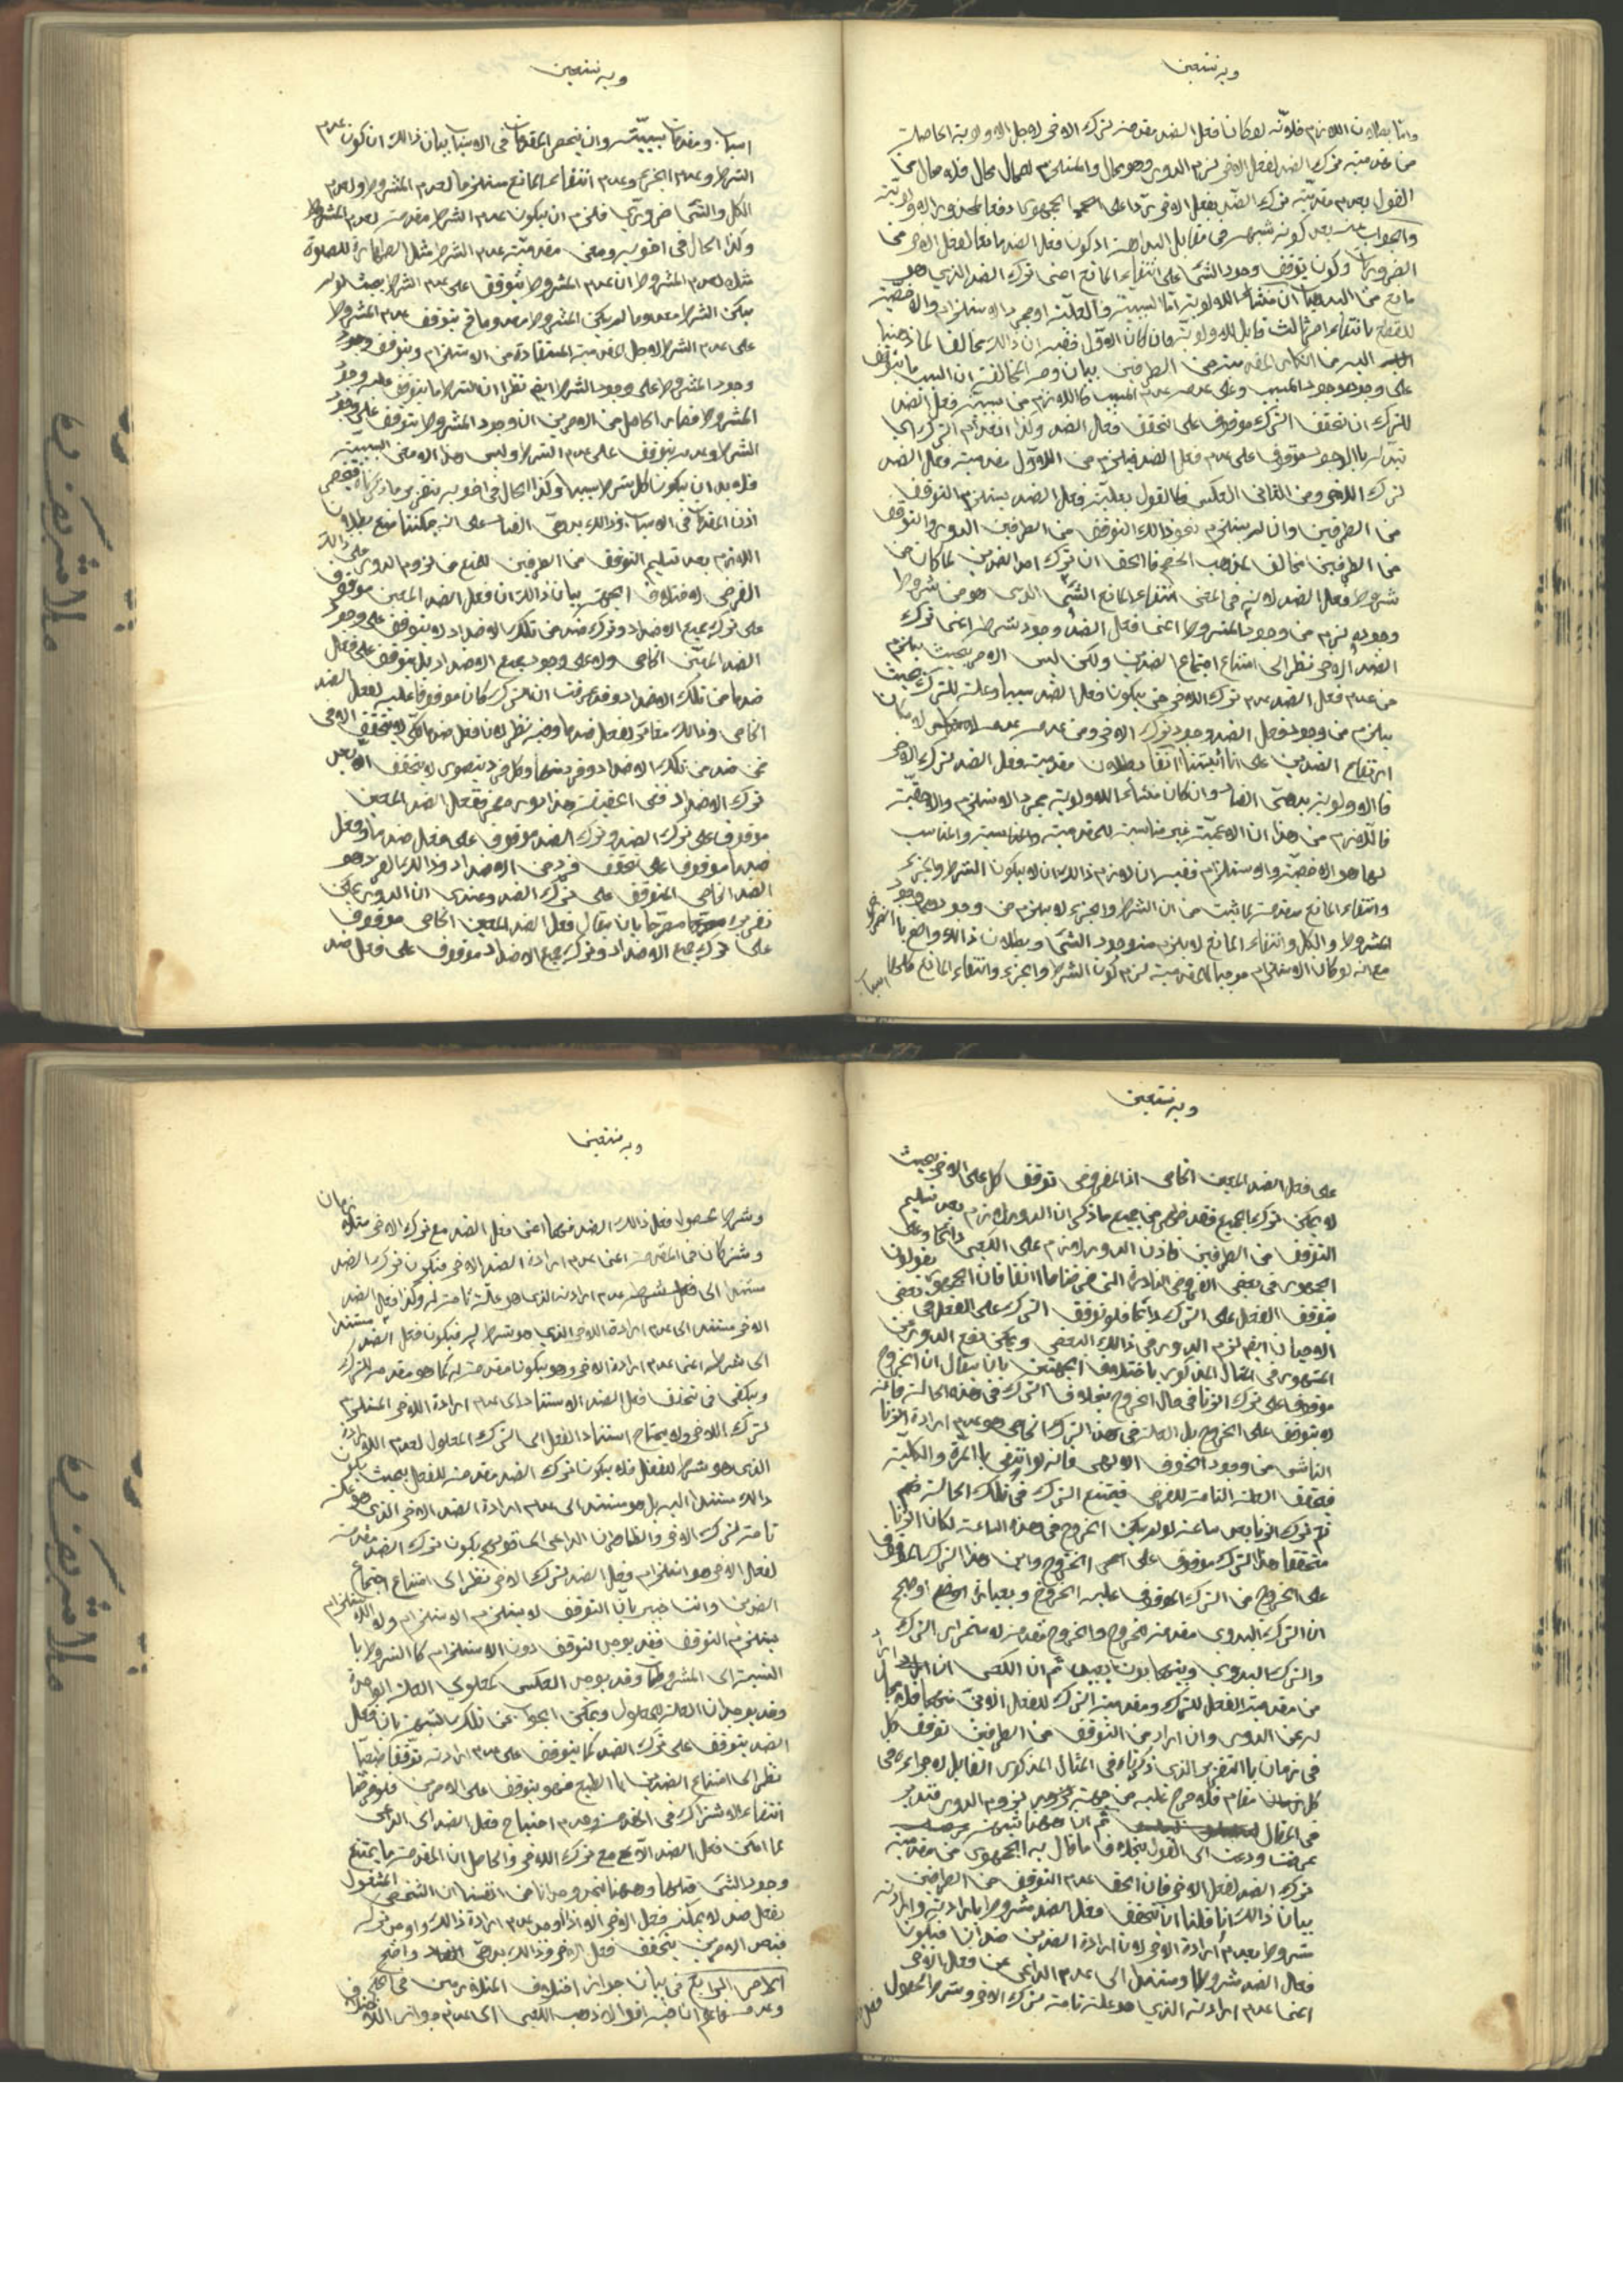 وبه نستعين
واما بطلان اللازم فلانه لو كان فعل الضد مقدمة لترك الاخر لاجل الاولوية الحاصلة
من مقدمية ترك الضد لفعل الاخر لزم الدور وهو محال والمستلزم للمحال محال فلا مجال من
القول بعدم مقدمية ترك الضد لفعل الاخر ردا على الجمهور دفعا لمحذور الاولوية
والجواب عنه بعد كونه شبهة في مقابل البداهة اذ كون فعل الضد مانعا لفعل الاخر من
الضروريات وكون توقف وجود الشئ على انتفاء المانع اعنى ترك الضد الذي هو
مانع من البديهيات ان منشاء الاولوية اما السببية والعلية او مجرد الاستلزام والاخصية
للقطع بانتفاء امر ثالث قابل للاولوية فان كان الاول ففيه ان ذلك مخالف لما ذهبنا
اليه من انكار المقدمية من الطرفين بيان وجه المخالفة ان السبب ما يتوقف
على وجوده وجود المسبب وعلى عدمه عدم المسبب فاللازم من سببية فعل الضد
للترك ان تحقق الترك موقوف على تحقق فعل الضد وكذا انعدام الترك اي
تبدله بالوجود موقوف على عدم فعل الضد فيلزم من الاول مقدمية فعل الضد
لترك الاخر ومن الثاني العكس فالقول بعلية فعل الضد يستلزم التوقف
من الطرفين وان لم يستلزم نحو ذلك التوقف من الطرفين الدور والتوقف
من الطرفين مخالف لمذهب الخصم فالحق ان ترك احد الضدين لما كان من
شروط فعل الضد لانه في المعنى انتفاء المانع الشئ الذي هو من شروط
وجوده لزم من وجود المشروط اعنى فعل الضد وجود شرطه اعنى ترك
الضد الاخر نظرا الى امتناع اجتماع الضدين ولكن ليس الامر بحيث يلزم
من عدم فعل الضد عدم ترك الاخر حتى يكون فعل الضد سببا وعلة للترك بحيث
يلزم من وجود فعل الضد وجود ترك الاخر ومن عدمه عدمه لامكان
ارتفاع الضدين على انا اثبتنا آنفا بطلان مقدمية فعل الضد لترك الاخر
فالاولوية بديهى الفساد وان كان منشاء الاولوية مجرد الاستلزام والاحقية
فاللازم من هذا ان الاعمية غير مناسبة للمقدمية والمناسبة والمناسب
لها هو الاخصية والاستلزام ففيه ان لازم ذلك ان لا يكون الشرط والجزء
وانتفاء المانع مقدمة لما ثبت من ان الشرط والجزء لا يلزم من وجودهما وجود
المشروط والكل وانتفاء المانع لا يلزم منه وجود الشئ وبطلان ذلك واضح بالضرورة
مع انه لو كان الاستلزام موجبا للمقدمية لزم كون الشرط والجزء وانتفاء المانع كلها
اسباب
وبه نستعين
اسباب ومقدمات سببية وان ينحصر المقدمات في الاسباب بيان ذلك ان كون عدم
الشرط وعدم الجزء وعدم انتفاء المانع مستلزما لعدم المشروط ولعدم
الكل والشئ ضرورى فلزم ان يكون عدم الشرط مقدمة لعدم المشروط
وكذا الحال في اخويه ومعنى مقدمية عدم الشرط مثل الطهارة للصلوة
مثلا لعدم المشروط ان عدم المشروط يتوقف على عدم الشرط بحيث لو لم
يكن الشرط معدوما لم يكن المشروط معدوما فح يتوقف عدم المشروط
على عدم الشرط لاجل المقدمية المستفادة من الاستلزام ويتوقف وجود
وجود المشروط على وجود الشرط ايضم نظرا الى ان الشرط ما يتوقف عليه وجود
المشروط فصار الحاصل من الامرين ان وجود المشروط يتوقف على وجود
الشرط وعدمه يتوقف على عدم الشرط وليس هذا الا معنى السببية
فلا بد ان يكون كل شرط سببا وكذا الحال في اخويه بتقرير ما ذكرناه فينحصر
اذن المقدمات في الاسباب وذلك بديهى الفساد على انه يمكننا منع بطلان
اللازم بعد تسليم التوقف من الطرفين لمنع لزوم الدور على ذلك
الفرض لاختلاف الجهة بيان ذلك ان فعل الضد المعين موقوف
على ترك جميع الاضداد وترك ضد من تلك الاضداد لا يتوقف على وجود
الضد المعين الخاص ولا على وجود جميع الاضداد بل يتوقف على فعل
ضد ما من تلك الاضداد وقد عرفت ان الترك كان موقوفا عليه لفعل الضد
الخاص وذلك مغاير لفعل ضد ما وفيه نظر لان فعل ضد ما كلى لا يتحقق الا في
ضمن ضد من تلك الاضداد وفرد منها وكل فرد يتصور لا يتحقق الا بعد
ترك الاضداد ففى الحقيقة هذا دور مضمر ففعل الضد المعين
موقوف على ترك الضد وترك الضد موقوف على فعل ضد ما وفعل
ضد ما موقوف على تحقق فرد من الاضداد وذلك الفرد هو
الضد الخاص المتوقف على ترك الضد وعندى ان الدور يمكن
تقريره مصرحا بان يقال فعل الضد المعين الخاص موقوف
على ترك جميع الاضداد وترك جميع الاضداد موقوف على فعل ضد
وبه نستعين
على فعل الضد المعين الخاص اذ المفروض توقف كل على الاخر بحيث
لا يمكن ترك الجميع فقد ظهر من جميع ما ذكر ان الدور لازم بعد تسليم
التوقف من الطرفين فاذن الدور لازم على الكعبى دائما وعلى
الجمهور في بعض الفروض النادرة التى فرضناها آنفا فان الجمهور يقولون
بتوقف الفعل على الترك دائما فلو توقف الترك على الفعل في بعض
الاحيان ايضم لزم الدور في ذلك البعض ويمكن دفع الدور من
المشهور في المثال المذكور باختلاف الجهتين بان يقال ان الخروج
موقوف على ترك الزنا في حال الخروج بخلاف الترك في هذه الحالة فانه
لا يتوقف على الخروج بل العلة في هذا الترك الخاص هو عدم ارادة الزنا
الناشى من وجود الخوف الالهى فانه لو انتفى بالمرة والكلية
فتحقق العلة التامة للفرض فيمتنع الترك في تلك الحالة نعم
ثم ترك الزنا بعد ساعة لو لم يكن الخروج في هذه الساعة لكان الزنا
متحققا وهذا الترك موقوف على الخروج واين هذا الترك الموقوف
على الخروج من الترك الموقوف عليه الخروج وبعبارة اوضح
ان الترك البدوى مقدمة للخروج والخروج مقدمة لاستمرار الترك
والترك البدوى وبينهما بون بعيد ثم ان الكعبى ان اراد
من مقدمية الفعل للترك ومقدمية الترك للفعل الآنى منهما فلا مجال
له عن الدور وان اراد من التوقف من الطرفين توقف كل
في زمان بالتقرير الذى ذكرناه في المثال المذكور القابل لاجرائه في
كل مقام فلا حرج عليه من جهة لزوم الدور فتدبر
في المقال ثم ان ههنا شبهة
عرفت ودعت الى القول بخلاف ما قال به الجمهور من مقدمية
ترك الضد لفعل الاخر فان الحق عدم التوقف من الطرفين
بيان ذلك انا قلنا ان تحقق فعل الضد مشروط بارادته وارادته
مشروط بعدم ارادة الاخر لان ارادة الضدين ضدان فيكون
فعل الضد مشروطا ومستندا الى عدم الداعى عن فعل الاخر
اعنى عدم ارادته الذي هو علة تامة لترك الاخر وشرط لحصول
فعل
وبه نستعين
وشرط لحصول فعل ذلك الضد فهما اعنى فعل الضد مع ترك الاخر متلازمان
ومشتركان في المقدمة اعنى عدم ارادة الضد الاخر فيكون ترك الضد
مستندا الى عدم ارادته الذى هو علة تامة له وكذا فعل الضد
الاخر مستند الى عدم ارادة الاخر الذي هو شرط له فيكون فعل الضد مستندا
الى شرطه اعنى عدم ارادة الاخر وهو يكون مقدمة له كما هو مقدمة للترك
ويكفى في تحقق فعل الضد الاستناد الى عدم ارادة الاخر المستلزم
لترك الاخر ولا يحتاج استناد الفعل الى الترك المعلول لعدم الارادة
الذى هو شرط للفعل فلا يكون ترك الضد مقدمة للفعل بحيث يكون
ذلك مستندا اليه بل هو مستند الى عدم ارادة الضد الاخر الذى هو علة
تامة لترك الاخر والظاهر ان الداعى الى القول بكون ترك الضد مقدمة
لفعل الاخر هو استلزام فعل الضد لترك الاخر نظرا الى امتناع اجتماع
الضدين وانت خبير بان التوقف لا يستلزم الاستلزام ولا الاستلزام
يستلزم التوقف فقد يوجد التوقف دون الاستلزام كما الشرط با
لنسبة الى المشروط وقد يوجد العكس كمعلولي العلة الواحدة
وقد يوجدان كالعلة للمعلول ويمكن الجواب عن تلك الشبهة بان فعل
الضد يتوقف على ترك الضد كما يتوقف على عدم ارادته توقفا طبعيا
نظرا الى امتناع الضدين بالطبع فهو يتوقف على الامرين فلو فرضنا
انتفاء الاشتراك في المقدمة وعدم احتياج فعل الضد الى الداعى
لما امكن فعل الضد الا مع ترك الاخر والحاصل ان المقدمة ما يمتنع
وجود الشئ قبلها وههنا نجد وجدانا من انفسنا ان الشخص المشغول
بفعل ضد لا يمكنه فعل الاخر الا اذا وجد عدم ارادة ذلك واوجد تركه
فبعد الامرين يتحقق فعل الاخر وذلك بديهى واضح
الامر الرابع في بيان جواز اختلاف المتلازمين في الحكم
وعدمه فاعلم ان فيه اقوالا ذهب الكعبى الى عدم جواز الاختلاف